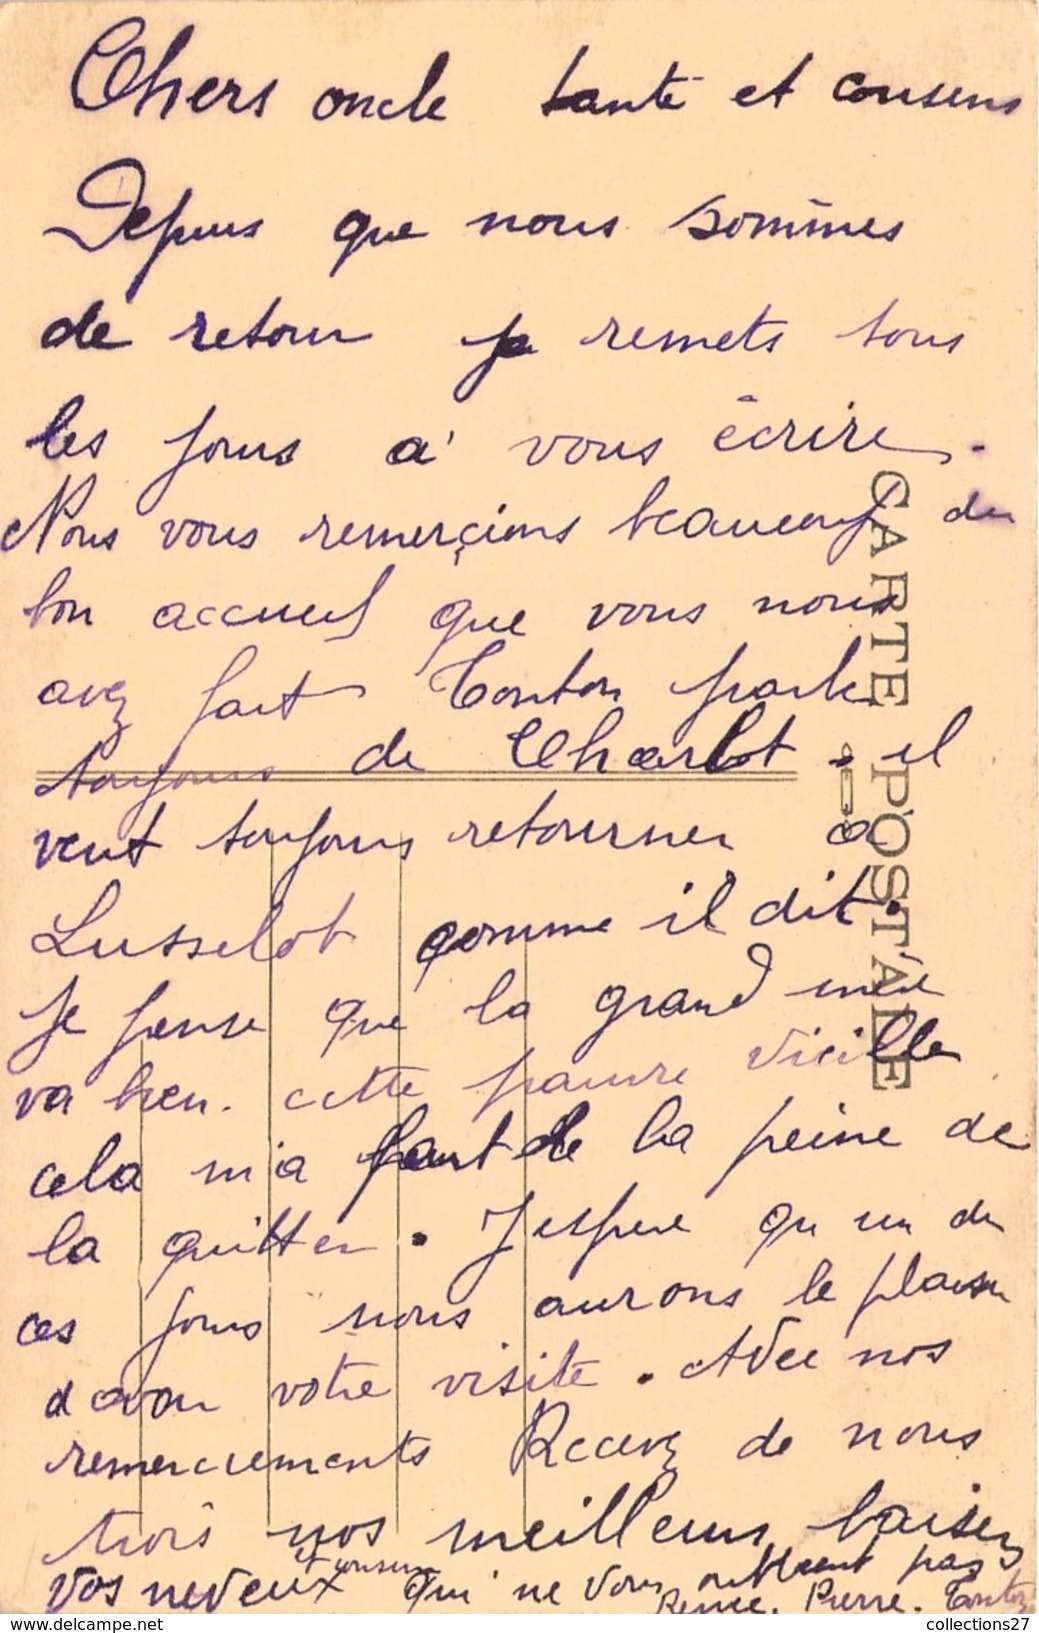 Chers oncle tante et cousins
Depuis que nous sommes
de retour je remets tous
les jours à vous écrire.
Nous vous remerçions beaucoup du
bon accueil que vous nous
avez fait Tonton parle
toujours de Charlot. il
veut toujours retourner a
Lusselot comme il dit.
Je pense que la grand mère
va bien. cette pauvre vieille
cela m'a fait de la peine de
la quitter. J espere qu un de
ces jours nous aurons le plaisir
d avoir votre visite. Avec nos
remerciements Recevez de nous
trois nos meilleurs baisers
et cousins
Vos neveux qui ne vous oublient pas
Renée. Pierre. Tonton
CARTE POSTALE
collections27